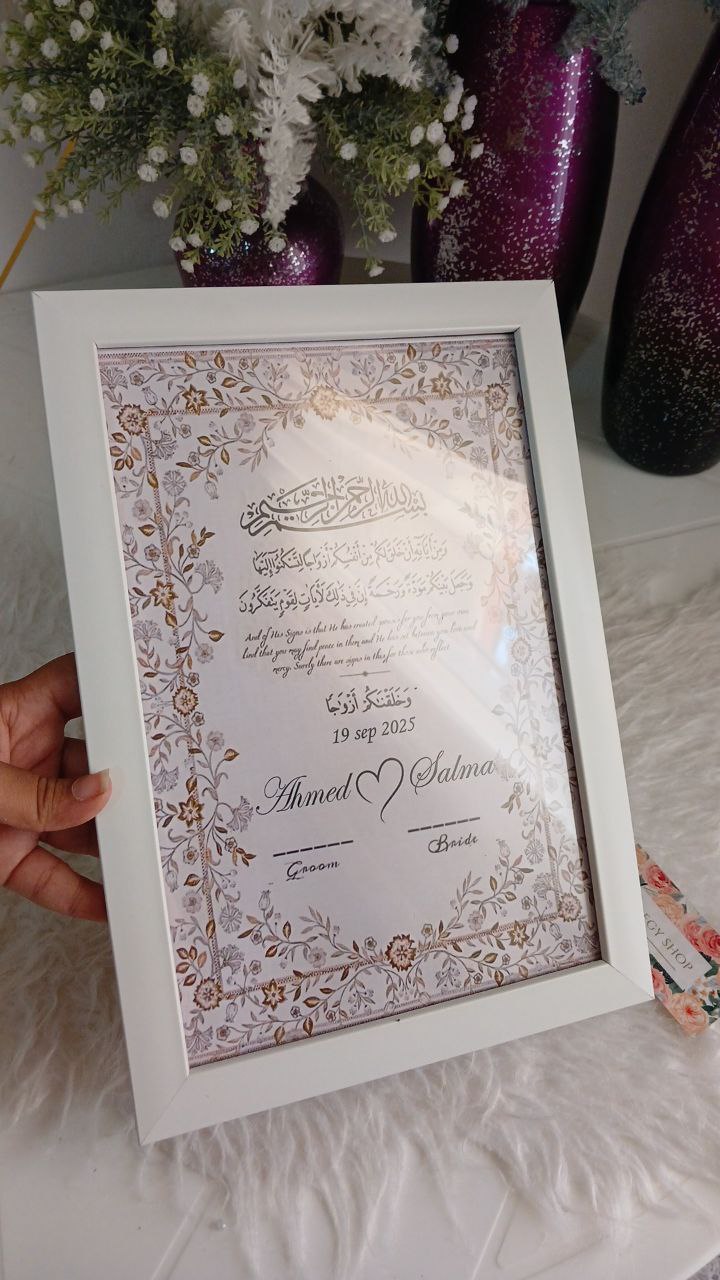 بسم الله الرحمن الرحيم
وَمِنْ آيَاتِهِ أَنْ خَلَقَ لَكُم مِّنْ أَنفُسِكُمْ أَزْوَاجًا لِّتَسْكُنُوا إِلَيْهَا
وَجَعَلَ بَيْنَكُم مَّوَدَّةً وَرَحْمَةً إِنَّ فِي ذَٰلِكَ لَآيَاتٍ لِّقَوْمٍ يَتَفَكَّرُونَ
And of His Signs is that He has created for you from your own
kind that you may find peace in them and He has set between you love and
mercy. Surely there are signs in this for those who reflect
وَخَلَقْنَاكُمْ أَزْوَاجًا
19 sep 2025
Ahmed Salma
Groom Bride
EGY SHOP